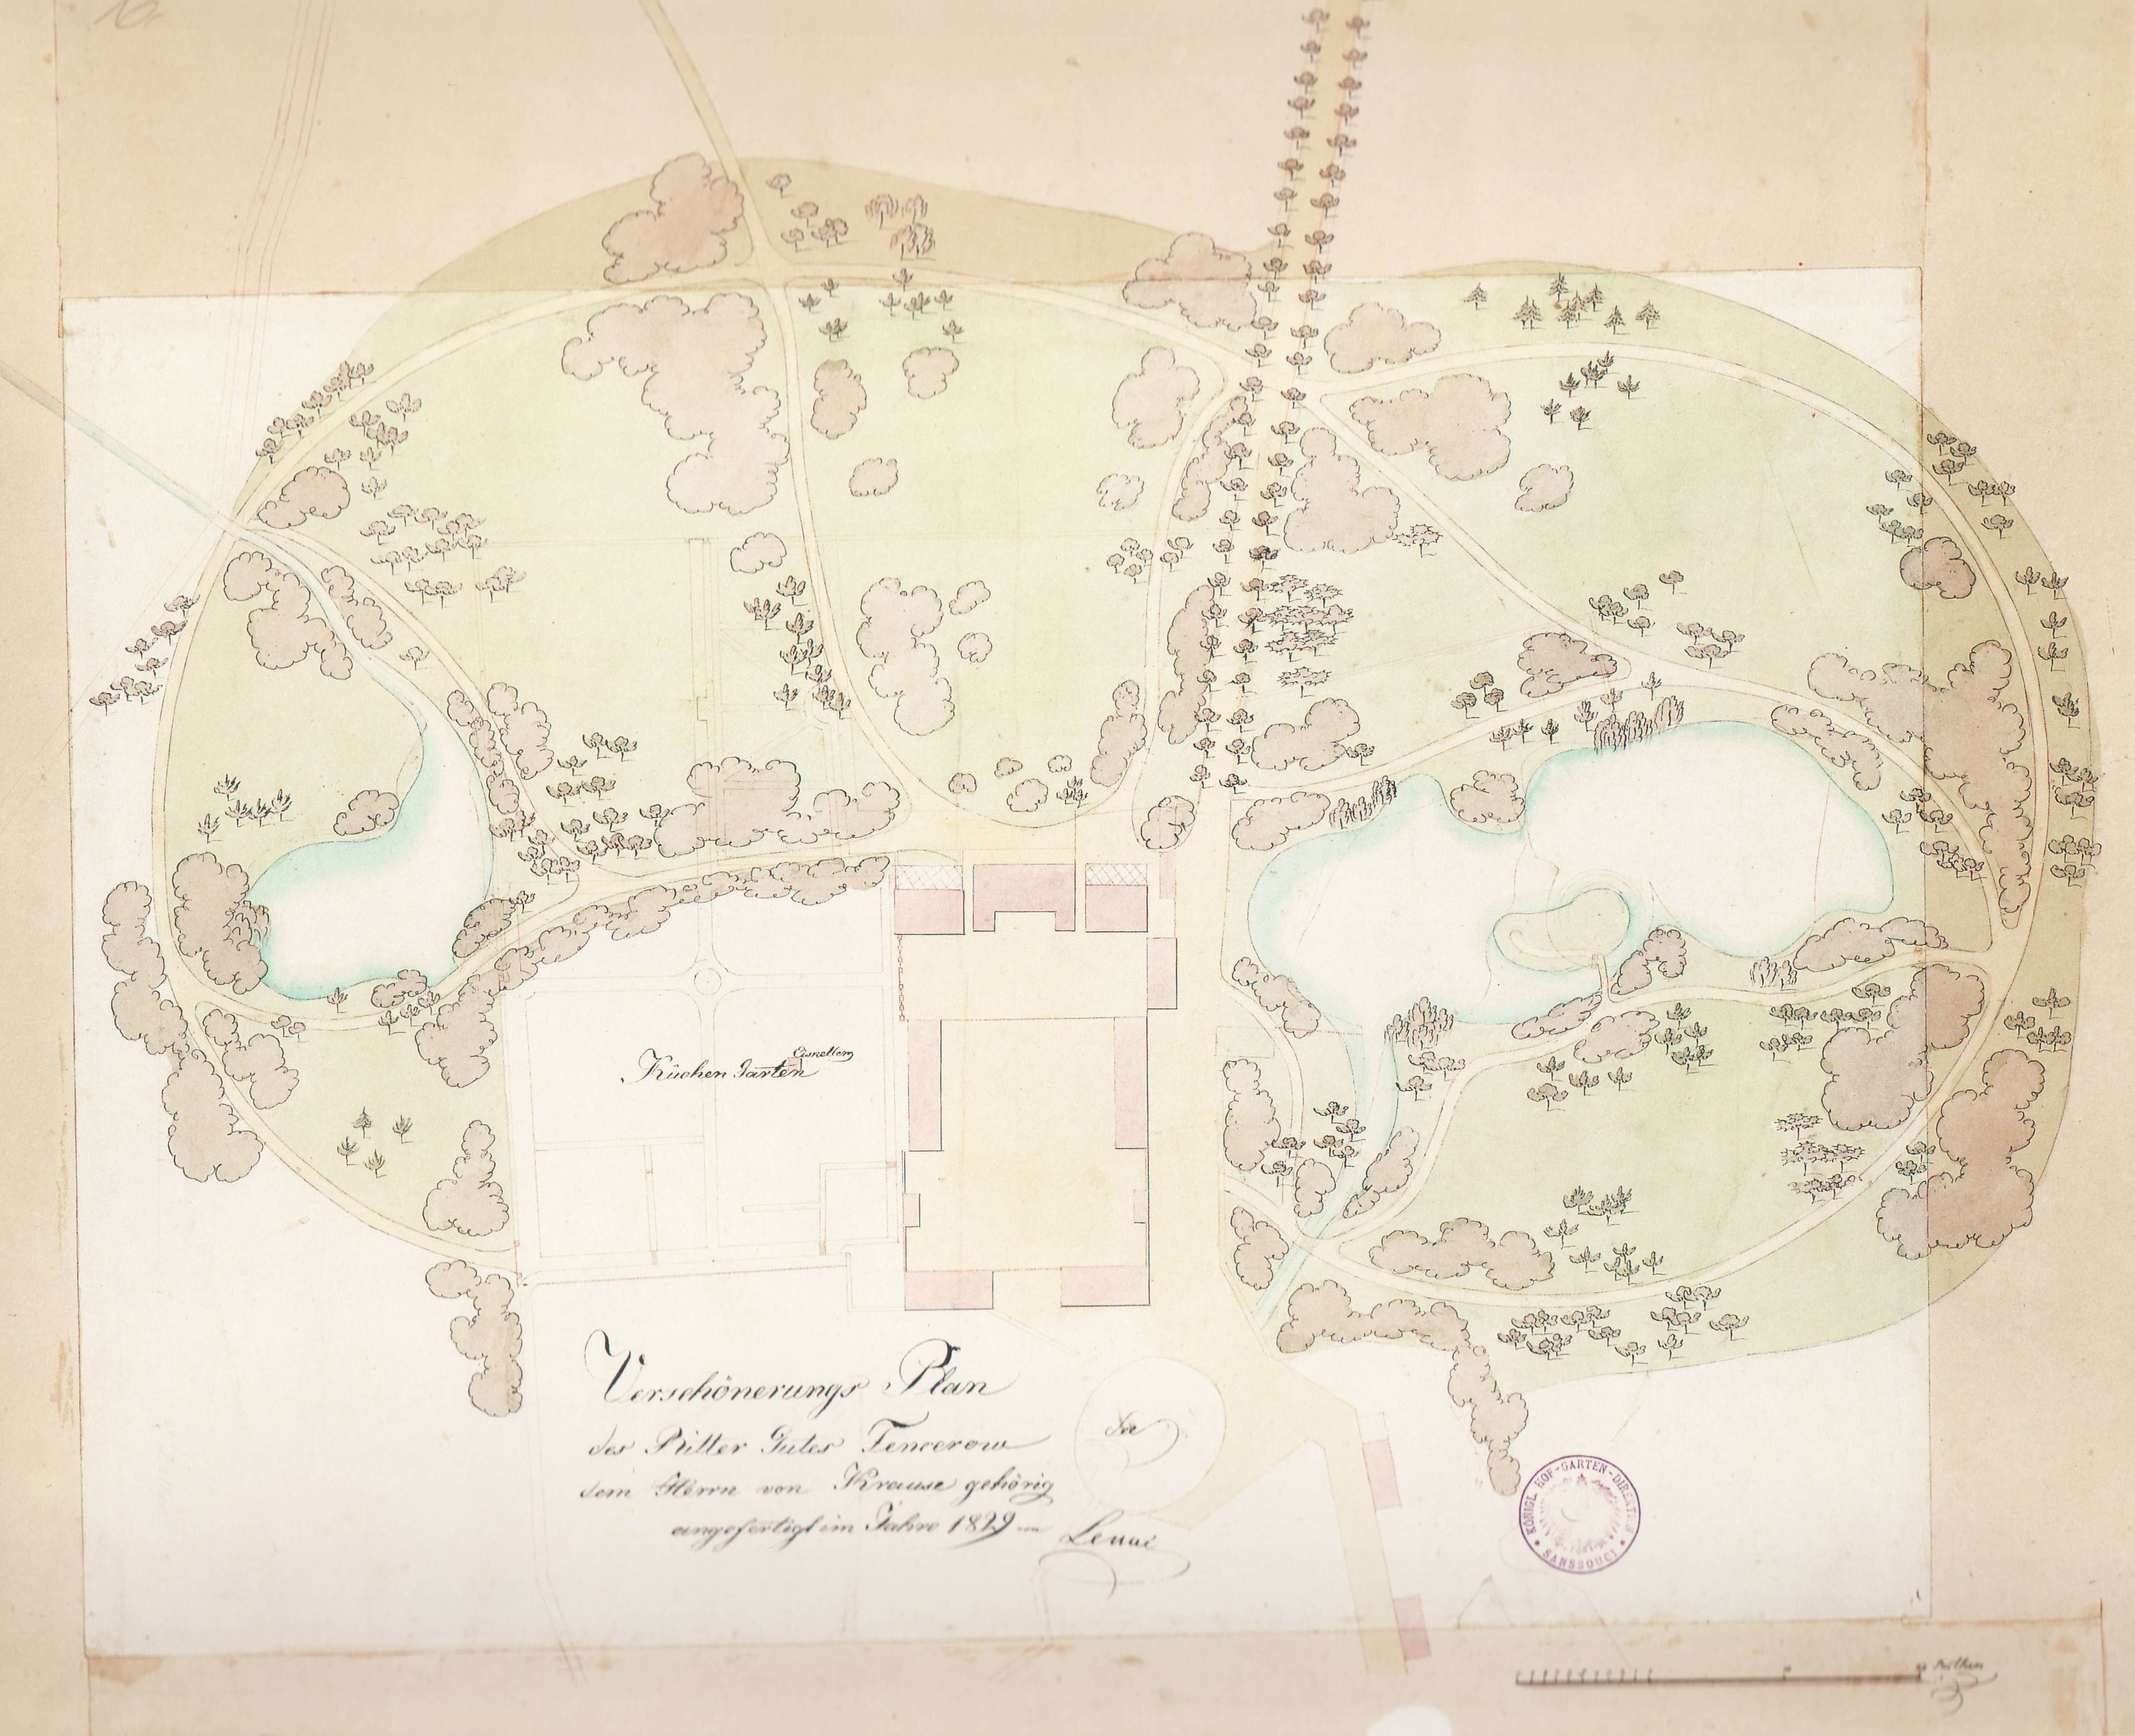 Eiskeller
Küchen Garten
Verschönerungs Plan
des Ritter Gutes Tencerow
dem Herrn von Krause gehörig
angefertigt im Jahre 1829
Lenné
KÖNIGL. HOF-GARTEN-DIREKTION
SANSSOUCI
Ruthen